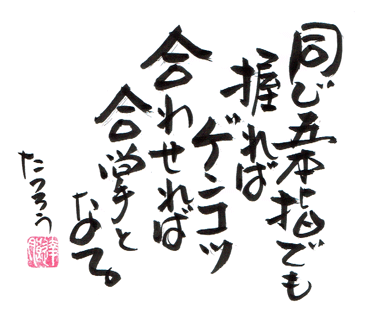 同じ五本指でも
握れば
ゲンコツ
合わせれば
合掌と
なる
たつろう